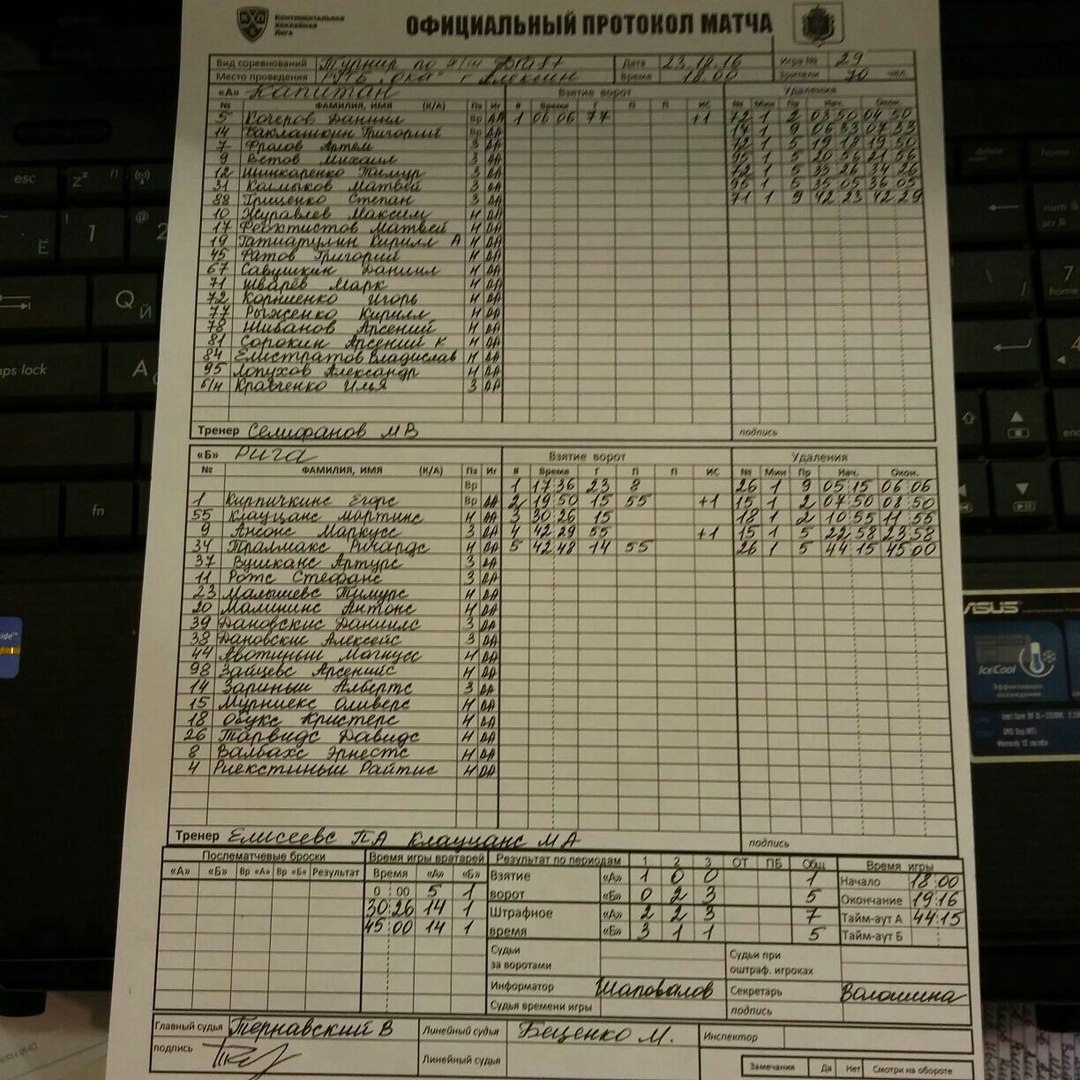 КОНТИНЕНТАЛЬНАЯ ХОККЕЙНАЯ ЛИГА
ОФИЦИАЛЬНЫЙ ПРОТОКОЛ МАТЧА
Вид соревнований Турнир по Дата 23.12.16 Игра № 29
Место проведения "Ока" г Алексин Время 18.00 Зрители 70 чел.
«А» Капитан Взятие ворот Удаления
№ ФАМИЛИЯ, ИМЯ (К/А) Пз Иг # Время Г П П ИС № Мин Пр Нач. Окон.
5 Кочеров Даниил Вр ДА 1 06 06 77 +1 72 1 2 03 50 04 50
14 Баклашкин Григорий Вр ДА 14 1 9 06 33 07 33
7 Фролов Артем З ДА 72 1 5 19 18 19 50
9 Ветов Михаил З ДА 95 1 5 20 56 21 56
12 Шинкаренко Тимур З ДА 72 1 5 33 26 34 26
31 Калмыков Матвей З ДА 95 1 5 35 05 36 05
88 Гриценко Степан З ДА 71 1 9 42 23 42 29
10 Журавлев Максим Н ДА
17 Феоктистов Матвей Н ДА
19 Гатиатулин Кирилл А Н ДА
45 Фатов Григорий Н ДА
67 Савушкин Даниил Н ДА
71 Шварев Марк Н ДА
72 Корниенко Игорь Н ДА
77 Рыженко Кирилл Н ДА
78 Шибанов Арсений Н ДА
81 Сорокин Арсений К Н ДА
84 Елистратов Владислав Н ДА
95 Лопухов Александр Н ДА
б/н Кравченко Илья З ДА
Тренер Селифанов МВ подпись
«Б» Рига Взятие ворот Удаления
№ ФАМИЛИЯ, ИМЯ (К/А) Пз Иг # Время Г П П ИС № Мин Пр Нач. Окон.
Вр 1 17 36 23 8 26 1 9 05 15 06 06
1 Кирпичкинс Егорс Вр ДА 2 19 50 15 55 +1 15 1 2 07 50 08 50
55 Клауцанс Мартинс Н ДА 3 30 26 15 18 1 2 10 55 11 55
9 Ансонс Маркусс З ДА 4 42 29 55 +1 15 1 5 22 58 23 58
34 Тралмакс Ричардс Н ДА 5 42 48 14 55 26 1 5 44 15 45 00
37 Вушканс Артурс З ДА
11 Ротс Стефанс З ДА
23 Малышевс Тимурс Н ДА
20 Малининс Антонс Н ДА
39 Дановскис Даниилс З ДА
38 Дановскис Алексейс З ДА
44 Авотиньш Магнусс Н ДА
98 Зайцевс Арсенийс Н ДА
14 Зариньш Албертс З ДА
15 Мурниекс Оливерс Н ДА
18 Обукс Кристерс Н ДА
26 Тарвидс Давидс Н ДА
8 Валбахс Эрнестс Н ДА
4 Риекстиньш Райтис Н ДА
Тренер Елисеевс ПА Клауцанс МА подпись
Послематчевые броски Время игры вратарей Результат по периодам 1 2 3 ОТ ПБ Общ Время игры
«А» «Б» Вр «А» Вр «Б» Результат Время «А» «Б» Взятие ворот «А» 1 0 0 1 Начало 18 00
0 00 5 1 «Б» 0 2 3 5 Окончание 19 16
30 26 14 1 Штрафное время «А» 2 2 3 7 Тайм-аут А 44 15
45 00 14 1 «Б» 3 1 1 5 Тайм-аут Б
Судьи за воротами Судьи при оштраф. игроках
Информатор Шаповалов Секретарь Волошина
Судья времени игры подпись
Главный судья Тернавский В Линейный судья Беценко М. Инспектор
подпись Линейный судья
Замечания Да Нет Смотри на обороте
esc
caps lock
fn
Q
Й
A
1
2
@
home
7
ASUS
IceCool